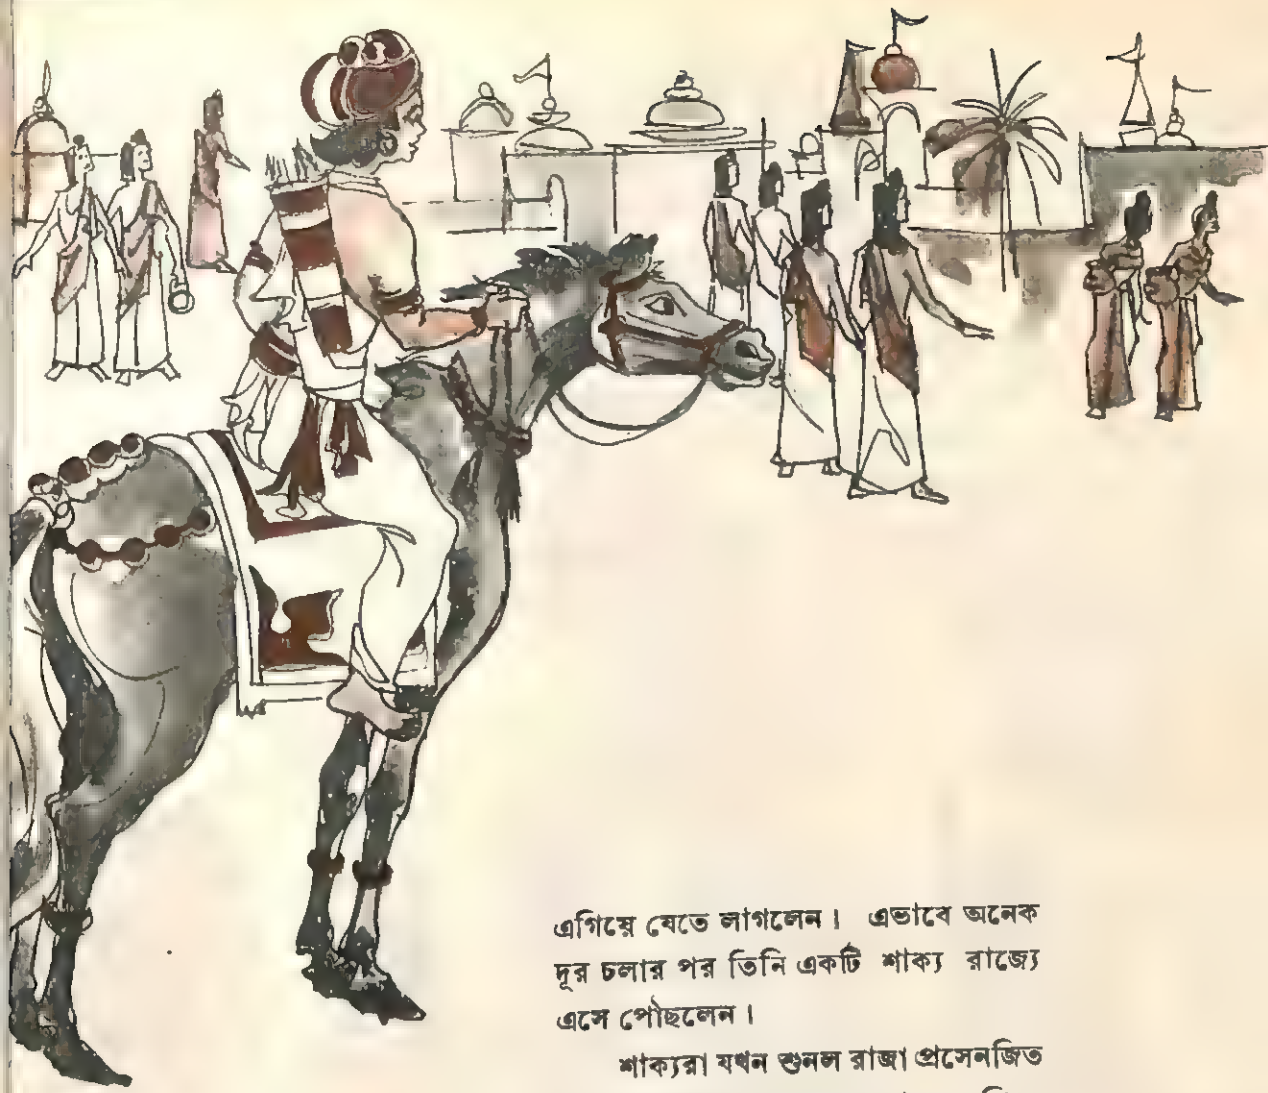 এগিয়ে যেতে লাগলেন। এভাবে অনেক
দূর চলার পর তিনি একটি শাক্য রাজ্যে
এসে পৌঁছলেন।
শাক্যরা যখন শুনল রাজা প্রসেনজিত